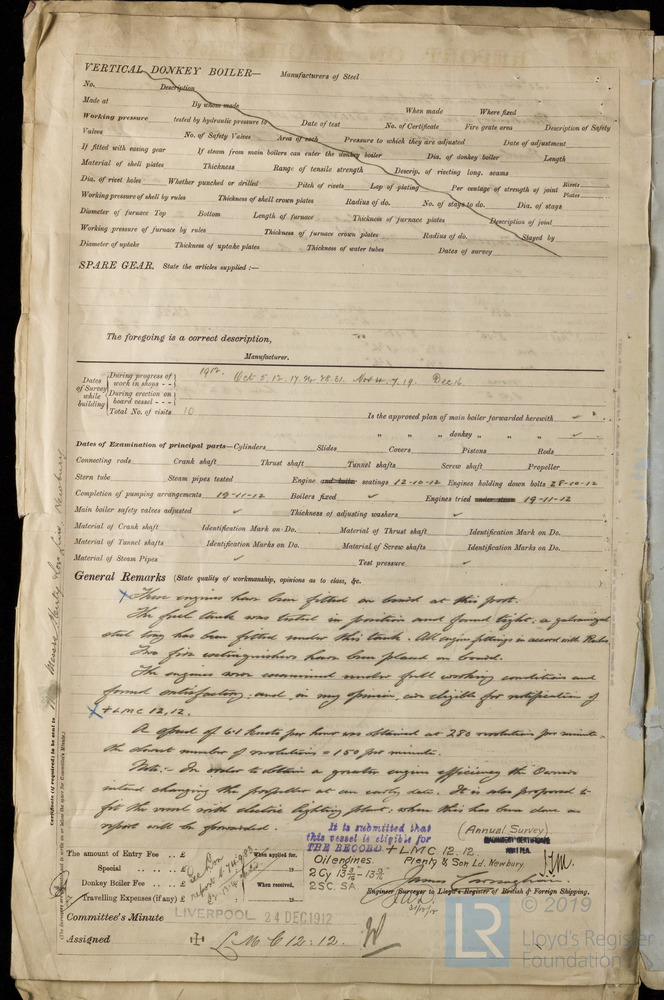 VERTICAL DONKEY BOILER— Manufacturers of Steel
No. Description
Made at By whom made When made Where fixed
Working pressure tested by hydraulic pressure to Date of test No. of Certificate Fire grate area Description of Safety
Valves No. of Safety Valves Area of each Pressure to which they are adjusted Date of adjustment
If fitted with easing gear If steam from main boilers can enter the donkey boiler Dia. of donkey boiler Length
Material of shell plates Thickness Range of tensile strength Descrip. of riveting long. seams
Dia. of rivet holes Whether punched or drilled Pitch of rivets Lap of plating Per centage of strength of joint Rivets
Plates
Working pressure of shell by rules Thickness of shell crown plates Radius of do. No. of stays to do. Dia. of stays
Diameter of furnace Top Bottom Length of furnace Thickness of furnace plates Description of joint
Working pressure of furnace by rules Thickness of furnace crown plates Radius of do. Stayed by
Diameter of uptake Thickness of uptake plates Thickness of water tubes Dates of survey
SPARE GEAR. State the articles supplied :—
The foregoing is a correct description,
Manufacturer.
Dates of Survey while building
During progress of work in shops - - 1912. Oct 5. 12. 17. 24. 28. 31. Nov 4. 7. 19. Dec 16.
During erection on board vessel - - -
Total No. of visits 10
Is the approved plan of main boiler forwarded herewith ✓
" " " donkey " " " ✓
Dates of Examination of principal parts—Cylinders Slides Covers Pistons Rods
Connecting rods Crank shaft Thrust shaft Tunnel shafts Screw shaft Propeller
Stern tube Steam pipes tested Engine and boiler seatings 12-10-12 Engines holding down bolts 28-10-12
Completion of pumping arrangements 19-11-12 Boilers fixed ✓ Engines tried under steam 19-11-12
Main boiler safety valves adjusted ✓ Thickness of adjusting washers ✓
Material of Crank shaft Identification Mark on Do. Material of Thrust shaft Identification Mark on Do.
Material of Tunnel shafts Identification Marks on Do. Material of Screw shafts Identification Marks on Do.
Material of Steam Pipes ✓ Test pressure ✓
General Remarks (State quality of workmanship, opinions as to class, &c.
These engines have been fitted on board at this port.
The fuel tank was tested in position and found tight; a galvanized
steel tray has been fitted under this tank. All engine fittings in accord with Rules
Two fire extinguishers have been placed on board.
The engines were examined under full working conditions and
found satisfactory, and, in my opinion, are eligible for notification of
+ LMC 12, 12.
A speed of 6.1 knots per hour was obtained at 280 revolutions per minute
the slowest number of revolutions = 150 per minute.
Note:- In order to obtain a greater engine efficiency the Owners
intend changing the propeller at an early date. It is also proposed to
fit the vessel with electric lighting plant, when this has been done a
report will be forwarded.
It is submitted that
this vessel is eligible for
THE RECORD + LMC 12.12 (Annual Survey)
Oil engines. Plenty & Son Ld. Newbury.
2 Cy
2 S.C. S.A.
Engineer Surveyor to Lloyd's Register of British & Foreign Shipping.
The amount of Entry Fee . . £ When applied for,
Special . . £ 19
Donkey Boiler Fee . . £ When received,
Travelling Expenses (if any) £ 19
Committee's Minute LIVERPOOL 24 DEC 1912
Assigned + LMC 12:12.
© 2019
LR Lloyd's Register
Foundation